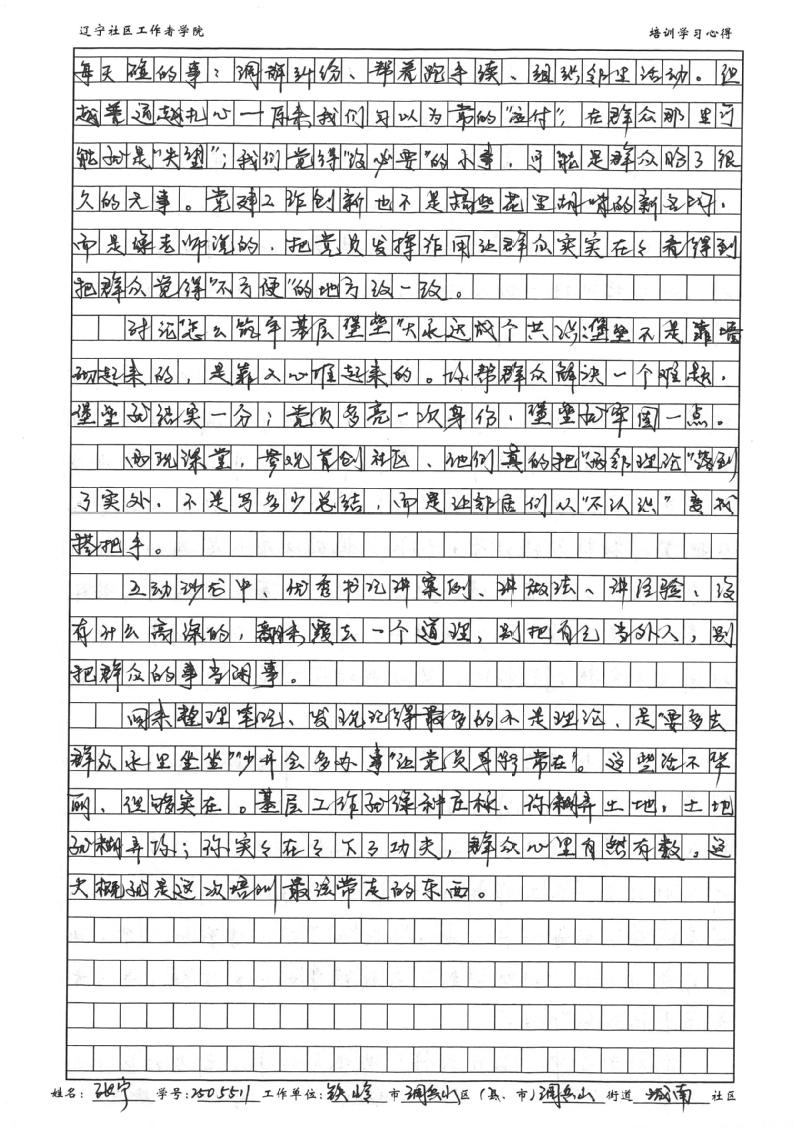 辽宁社区工作者学院 培训学习心得
每天碰的事：调解纠纷、帮着跑手续、组织邻里活动。但
越普通越扎心一原来我们习以为常的"应付"，在群众那里可
能就是"失望"；我们觉得"没必要"的小事，可能是群众盼了很
久的大事。党建工作创新也不是搞些花里胡哨的新名词，
而是像老师说的，把党员发挥作用让群众实实在々看得到
把群众觉得"不方便"的地方改一改。
讨论"怎么筑牢基层堡垒"大家达成个共识：堡垒不是靠墙
砌起来的，是靠人心堆起来的。你帮群众解决一个难题，
堡垒就结实一分；党员多亮一次身份，堡垒就牢固一点。
现课堂，参观首创社区、他们真的把"理论"落到
了实处，不是写多少总结，而是让邻居们从"不认识"变成
搭把手。
互动沙龙中、优秀书记讲案例、讲做法、讲经验、没
有什么高深的，翻来覆去一个道理，别把自己当外人，别
把群众的事当闲事。
回来整理笔记、发现记得最多的不是理论，是"要多去
群众家里坐坐""少开会多办事""让党员身影常在"。这些话不华
丽，但够实在。基层工作就像种庄稼、你糊弄土地，土地
就糊弄你；你实々在々下了功夫，群众心里自然有数。这
大概就是这次培训最该带走的东西。
姓名：张宁 学号：2505511 工作单位：铁岭 市 调兵山 区（县、市）调兵山 街道 城南 社区